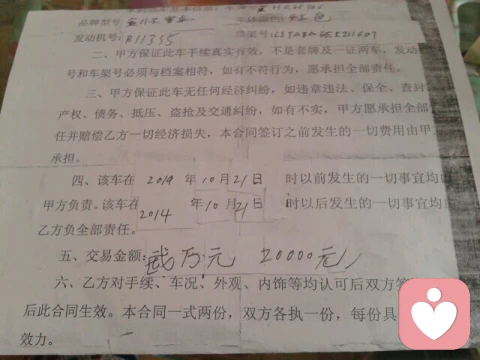 品牌型号
发动机号：B11335 车架号
二、甲方保证此车手续真实有效，不是套牌及一证两车，发动
号和车架号必须与档案相符，如有不符行为，愿承担全部责任。
三、甲方保证此车无任何经济纠纷，如违章违法、保全、查封
产权、债务、抵压、盗抢及交通纠纷，如有不实，甲方愿承担全部
任并赔偿乙方一切经济损失，本合同签订之前发生的一切费用由甲
承担。
四、该车在 2014 年 10 月 21 日 时以前发生的一切事宜均
甲方负责。该车在 2014 年 10 月 21 日 时以后发生的一切事宜均
乙方负全部责任。
五、交易金额：贰万元 20000元
六、乙方对手续、车况、外观、内饰等均认可后双方签
后此合同生效。本合同一式两份，双方各执一份，每份具
效力。